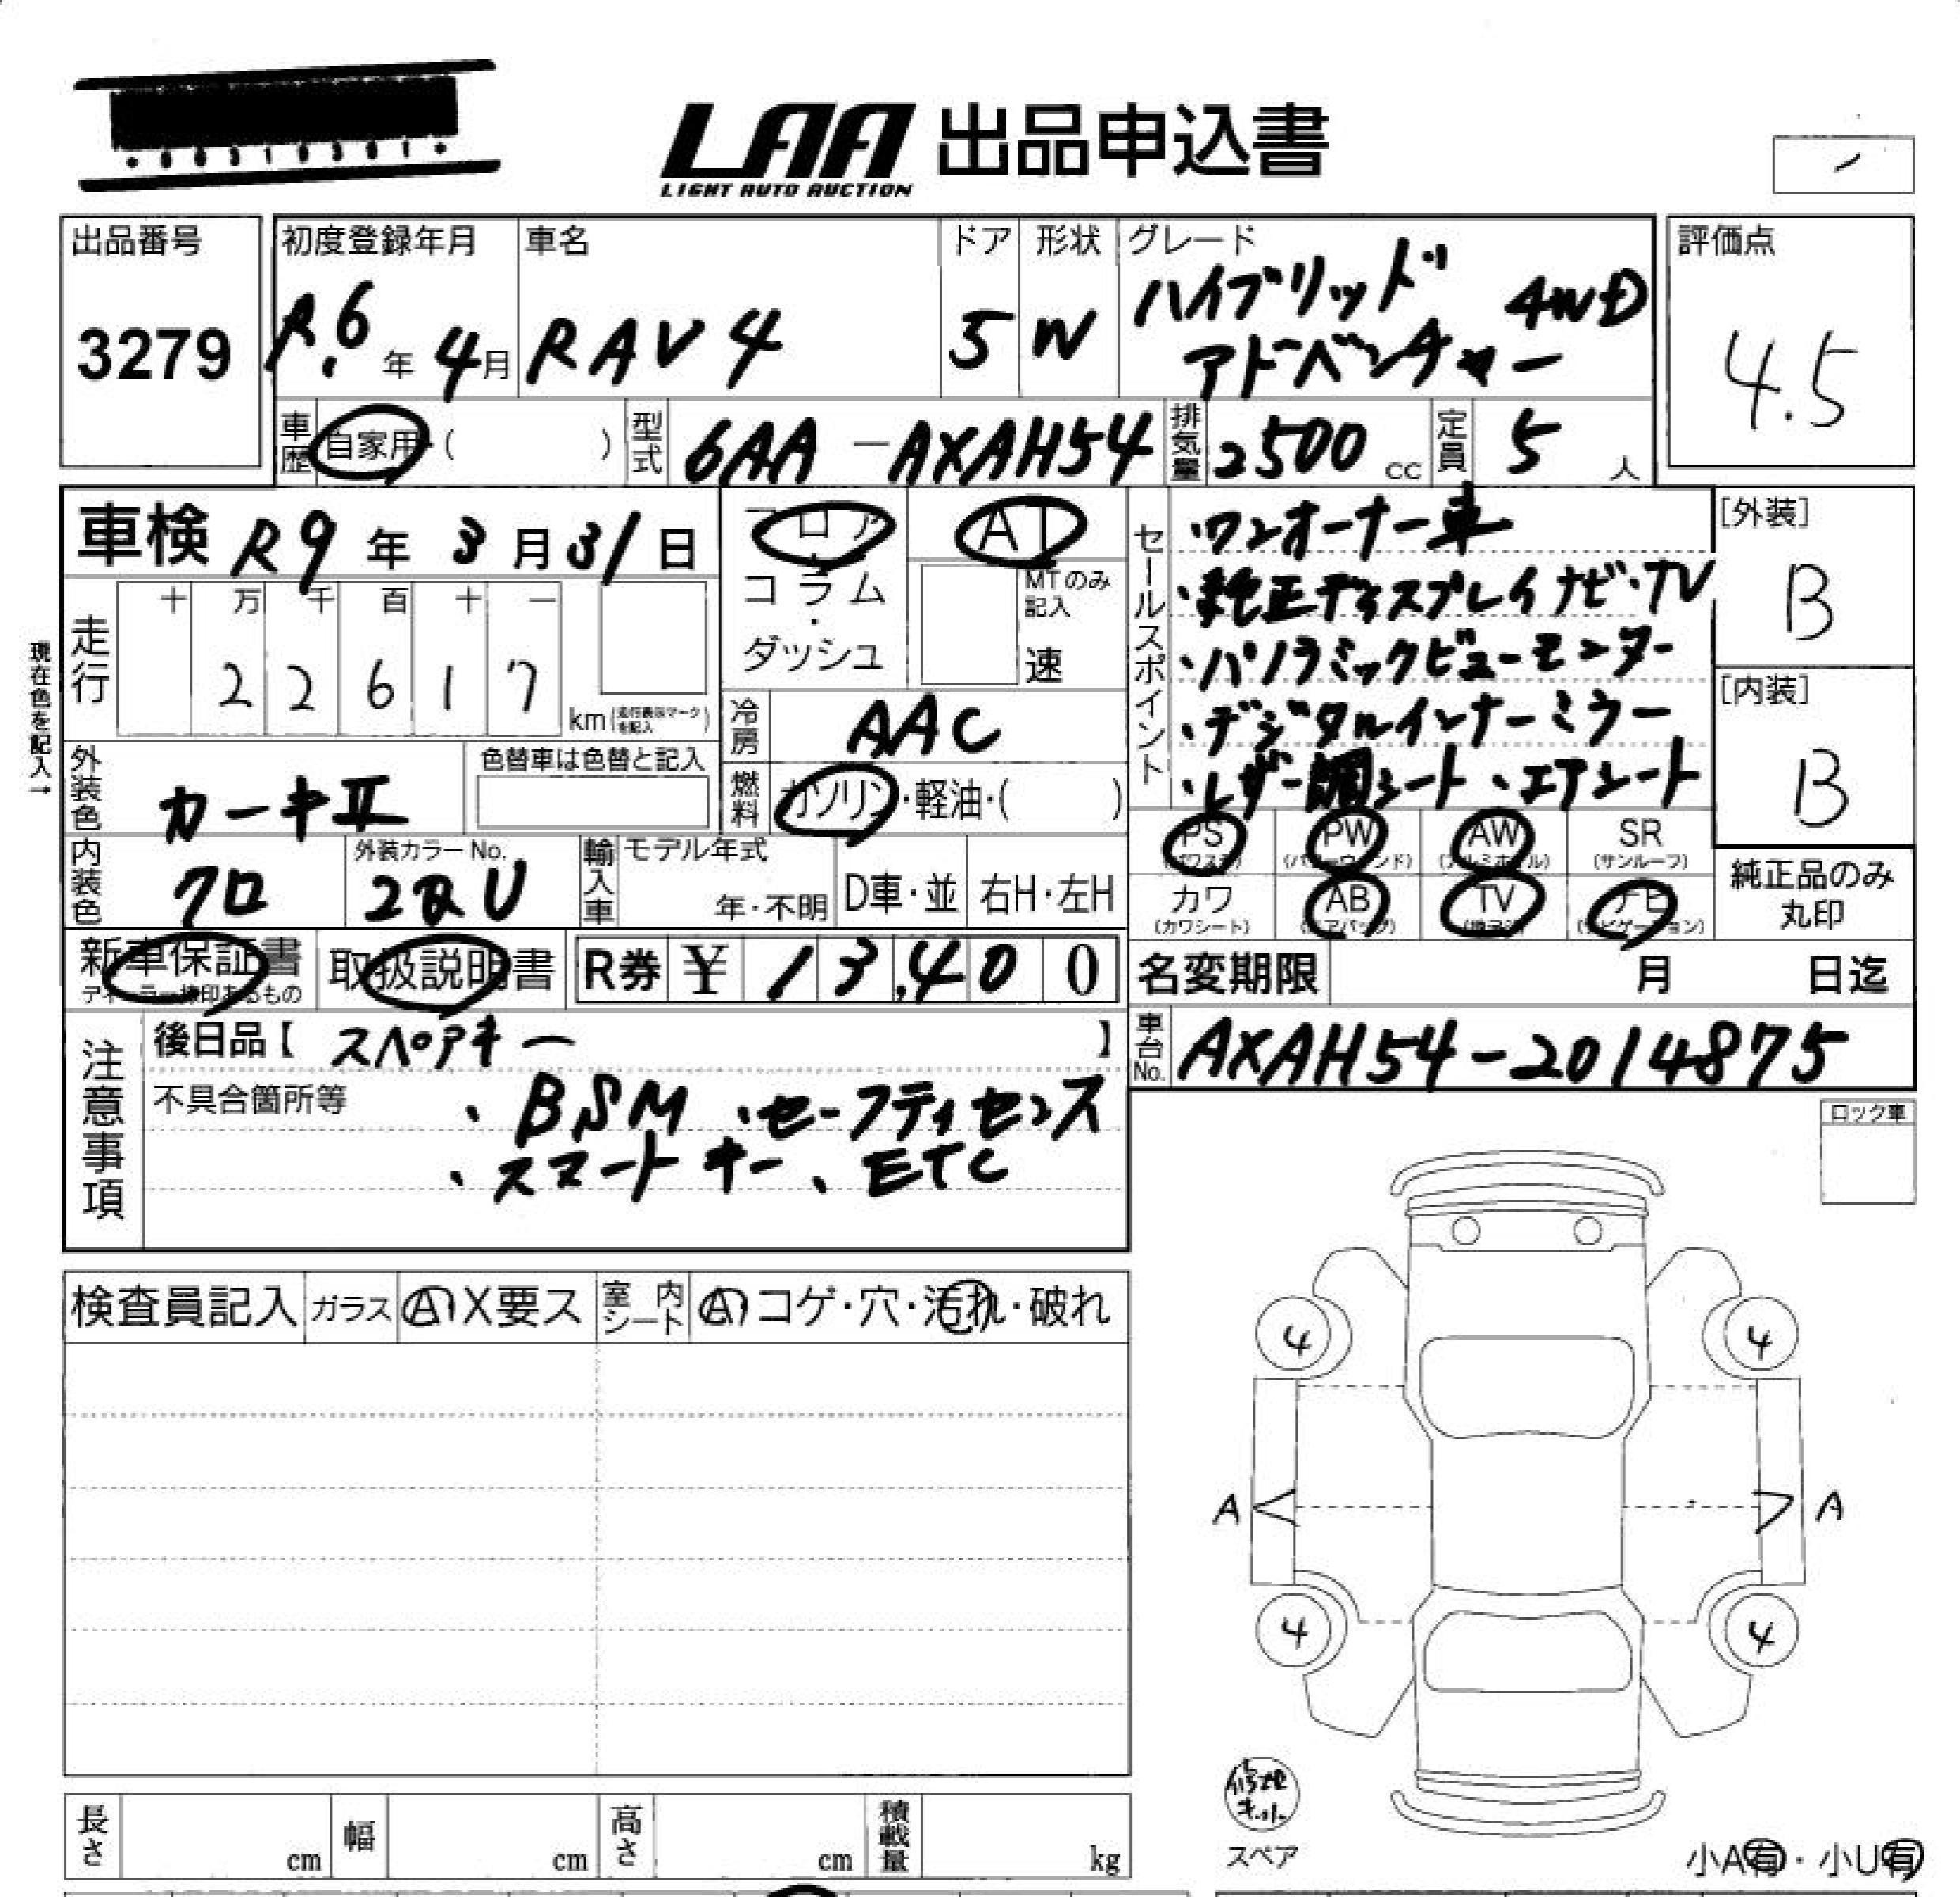 LAA 出品申込書
LIGHT AUTO AUCTION
出品番号
3279
初度登録年月
R.6年 4月
車名
RAV4
ドア
5
形状
W
グレード
ハイブリッド 4WD
アドベンチャー
評価点
4.5
車歴 自家用・( )
型式 6AA-AXAH54
排気量 2500 cc
定員 5 人
車検 R9年 3月31日
フロア
・
コラム
・
ダッシュ
AT
MTのみ
記入
速
セールスポイント
・ワンオーナー車
・純正ディスプレイナビ・TV
・パノラミックビューモニター
・デジタルインナーミラー
・レザー調シート ・エアシート
[外装]
B
[内装]
B
現在色を記入→
走行
十 万 千 百 十 一
22617
km(走行表示マークを記入)
冷房 AAC
燃料 ガソリン・軽油・( )
外装色 カーキII
色替車は色替と記入
内装色 クロ
外装カラーNo.
2QU
輸入車
モデル年式
年・不明
D車・並
右H・左H
PS PW AW SR
(パワステ) (パワーウィンド) (アルミホイル) (サンルーフ)
カワ AB TV ナビ
(カワシート) (エアバック) (地デジ) (ナビゲーション)
純正品のみ
丸印
新車保証書
ディーラー捺印あるもの
取扱説明書
R券 ¥ 13,400
名変期限 月 日迄
車台No. AXAH54-2014875
注意事項
後日品【 スペアキー 】
不具合箇所等
・BSM ・セーフティセンス
・スマートキー、ETC
ロック車
検査員記入 ガラス A X要ス
室内シート A コゲ・穴・汚れ・破れ
4 4
A A
4 4
修理キット
スペア
長さ cm
幅 cm
高さ cm
積載量 kg
小A有・小U有